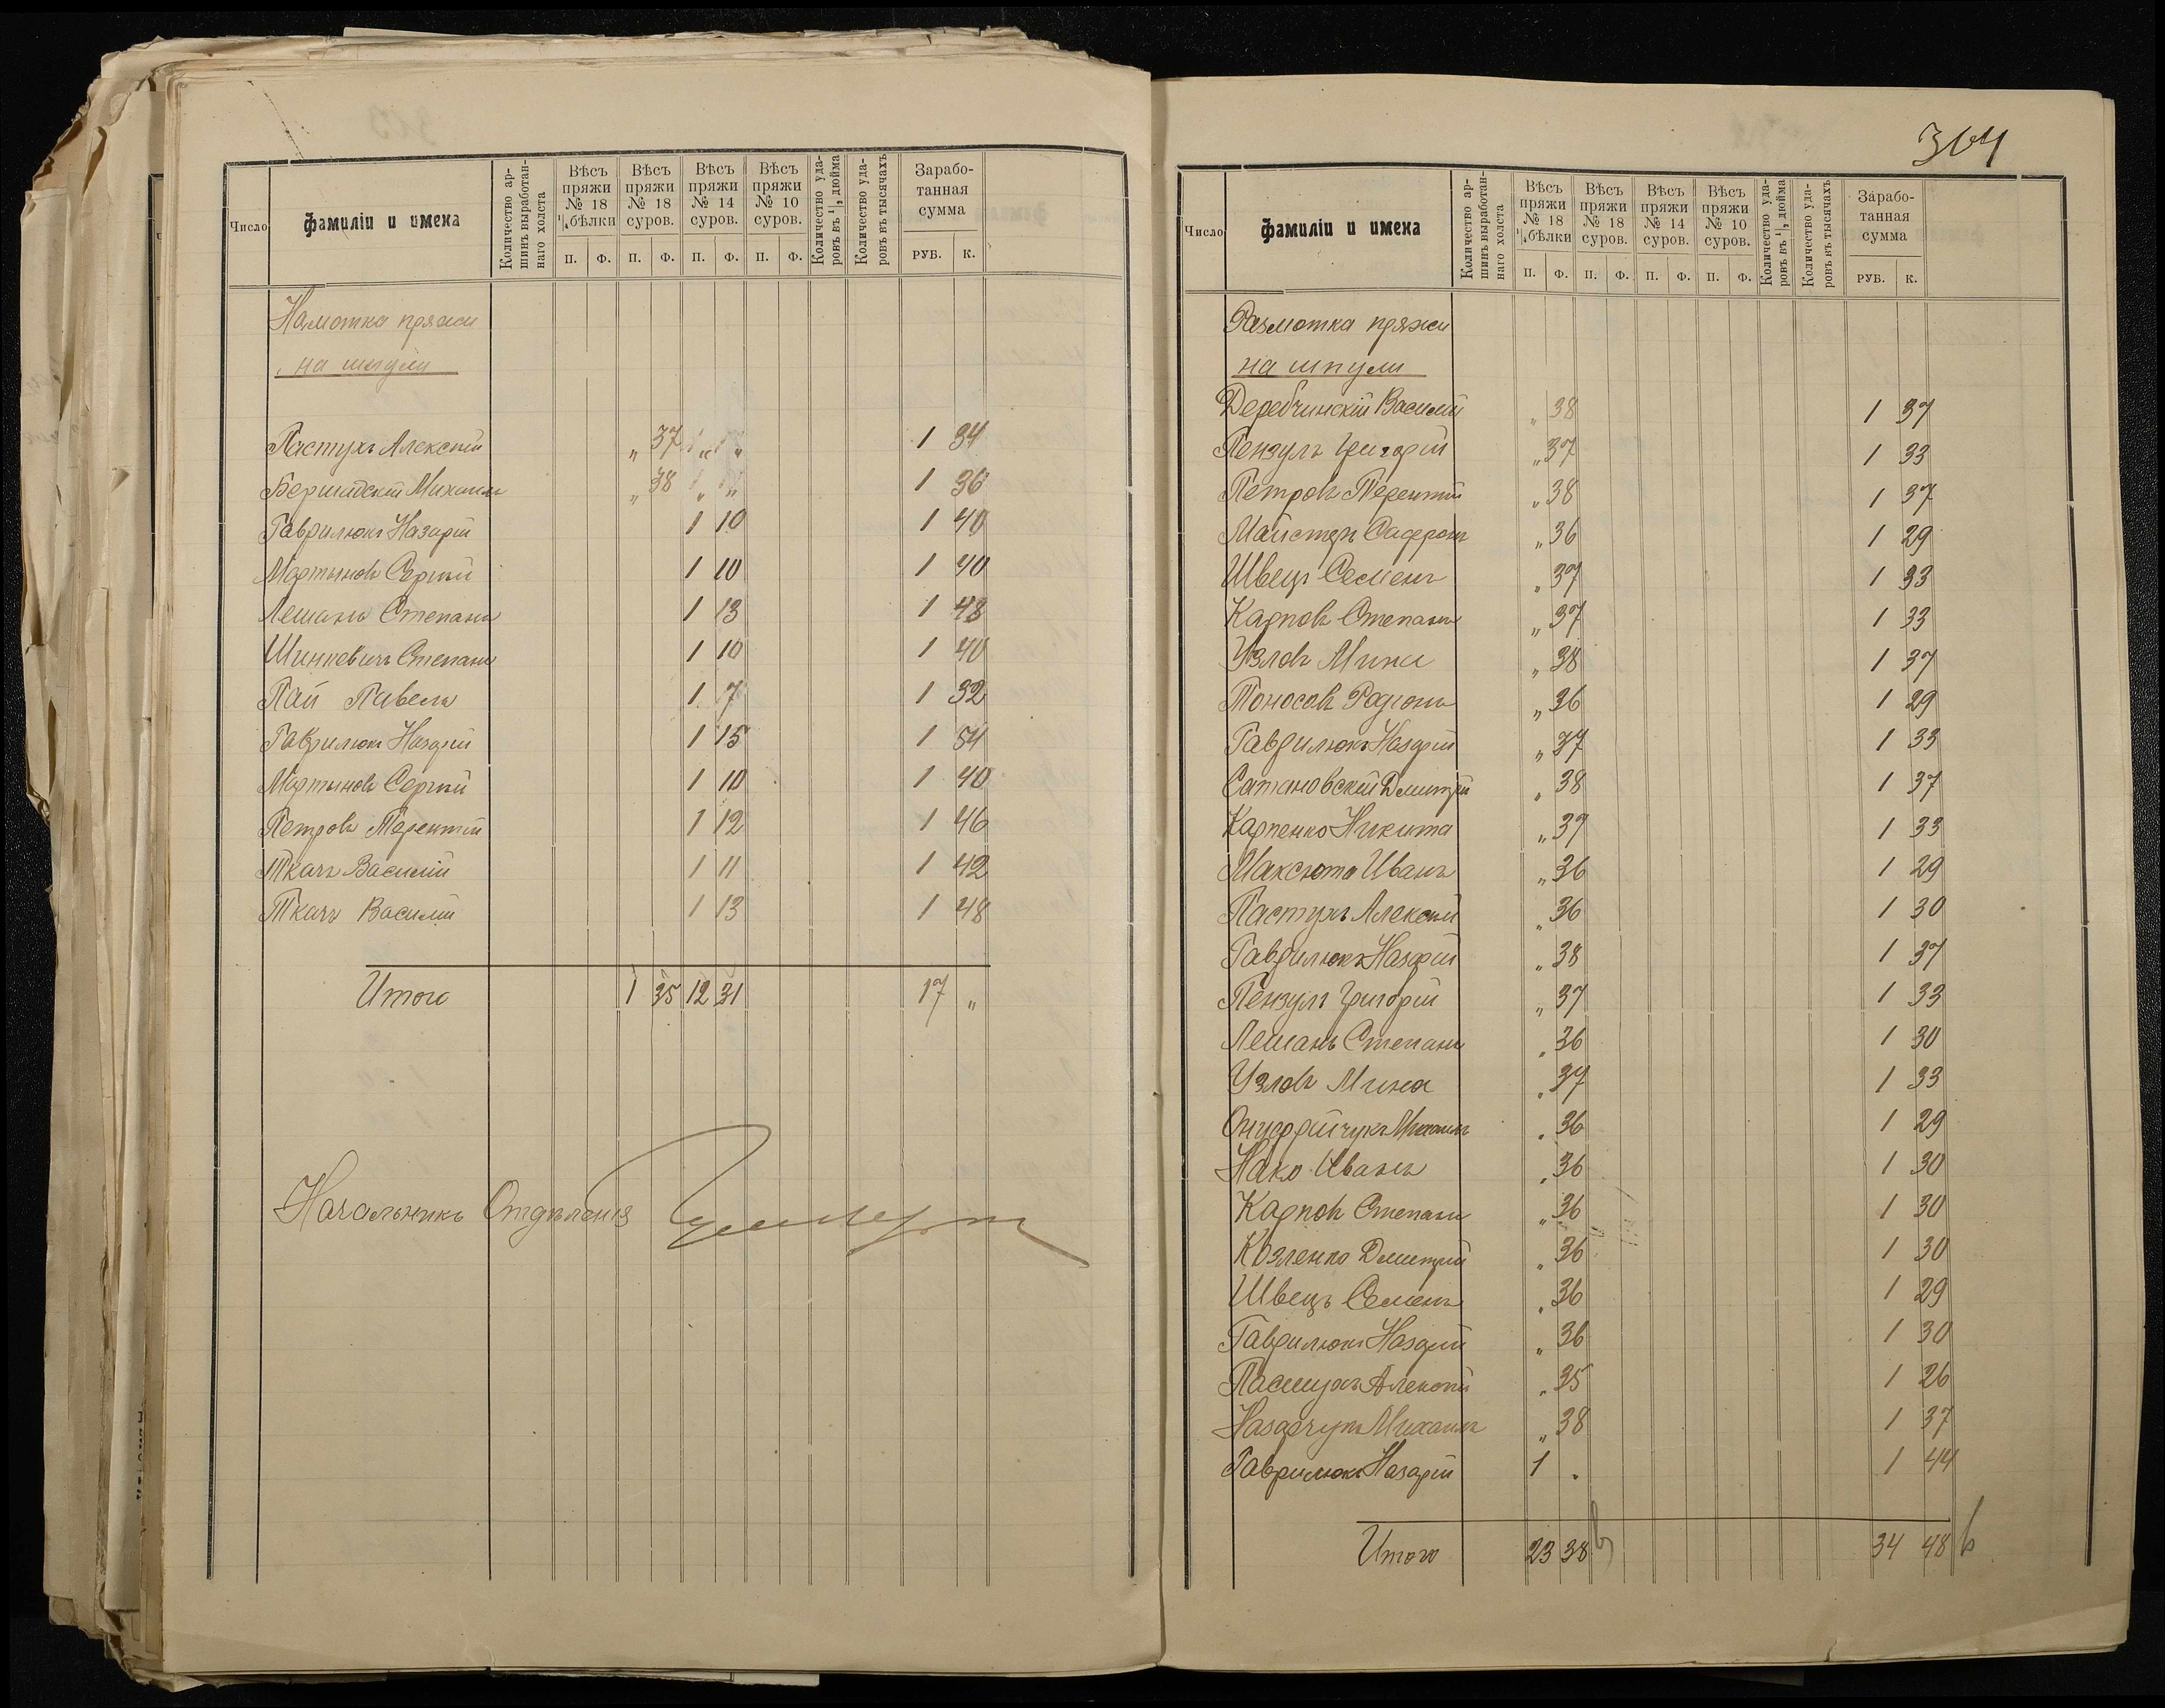 Число
фамиліи и имена
Количество ар-
шинъ выработан-
наго холста
Вѣсъ пряжи № 18 1/4 бѣлки П. Ф.
Вѣсъ пряжи № 18 суров. П. Ф.
Вѣсъ пряжи № 14 суров. П. Ф.
Вѣсъ пряжи № 10 суров. П. Ф.
Количество уда-
ровъ въ 1/4 дюйма
Количество уда-
ровъ въ тысячахъ
Зарабо-
танная
сумма
РУБ. К.
Намотка пряжи
на шпули
Пастухъ Алексѣй „ 37 „ „ 1 34
Бершадскій Михаилъ „ 38 „ „ 1 36
Гаврилюкъ Назарій 1 10 1 40
Мартыновъ Сергѣй 1 10 1 40
Лешанъ Степанъ 1 13 1 48
Шинкевичъ Степанъ 1 10 1 40
Пай Павелъ 1 7 1 32
Гаврилюкъ Назарій 1 15 1 54
Мартыновъ Сергѣй 1 10 1 40
Петровъ Терентій 1 12 1 46
Ткачъ Василій 1 11 1 42
Ткачъ Василій 1 13 1 48
Итого 1 35 12 31 17 „
Начальникъ Отдѣленія
364
Число
фамиліи и имена
Количество ар-
шинъ выработан-
наго холста
Вѣсъ пряжи № 18 1/4 бѣлки П. Ф.
Вѣсъ пряжи № 18 суров. П. Ф.
Вѣсъ пряжи № 14 суров. П. Ф.
Вѣсъ пряжи № 10 суров. П. Ф.
Количество уда-
ровъ въ 1/4 дюйма
Количество уда-
ровъ въ тысячахъ
Зарабо-
танная
сумма
РУБ. К.
Размотка пряжи
на шпули
Деребчинскій Василій „ 38 1 37
Пензулъ Григорій „ 37 1 33
Петровъ Терентій „ 38 1 37
Майстеръ Сафронъ „ 36 1 29
Швецъ Семенъ „ 37 1 33
Карповъ Степанъ „ 37 1 33
Узловъ Мина „ 38 1 37
Тоносовъ Родіонъ „ 36 1 29
Гаврилюкъ Назарій „ 37 1 33
Сатановскій Дмитрій „ 38 1 37
Карпенко Никита „ 37 1 33
Максюта Иванъ „ 36 1 29
Пастухъ Алексѣй „ 36 1 30
Гаврилюкъ Назарій „ 38 1 37
Пензулъ Григорій „ 37 1 33
Лешанъ Степанъ „ 36 1 30
Узловъ Мина „ 37 1 33
Онуфрійчукъ Михаилъ „ 36 1 29
Нако Иванъ „ 36 1 30
Карповъ Степанъ „ 36 1 30
Козленко Дмитрій „ 36 1 30
Швецъ Семенъ „ 36 1 29
Гаврилюкъ Назарій „ 36 1 30
Пастухъ Алексѣй „ 35 1 26
Назарчукъ Михаилъ „ 38 1 37
Гаврилюкъ Назарій 1 „ 1 44
Итого 23 38 34 48